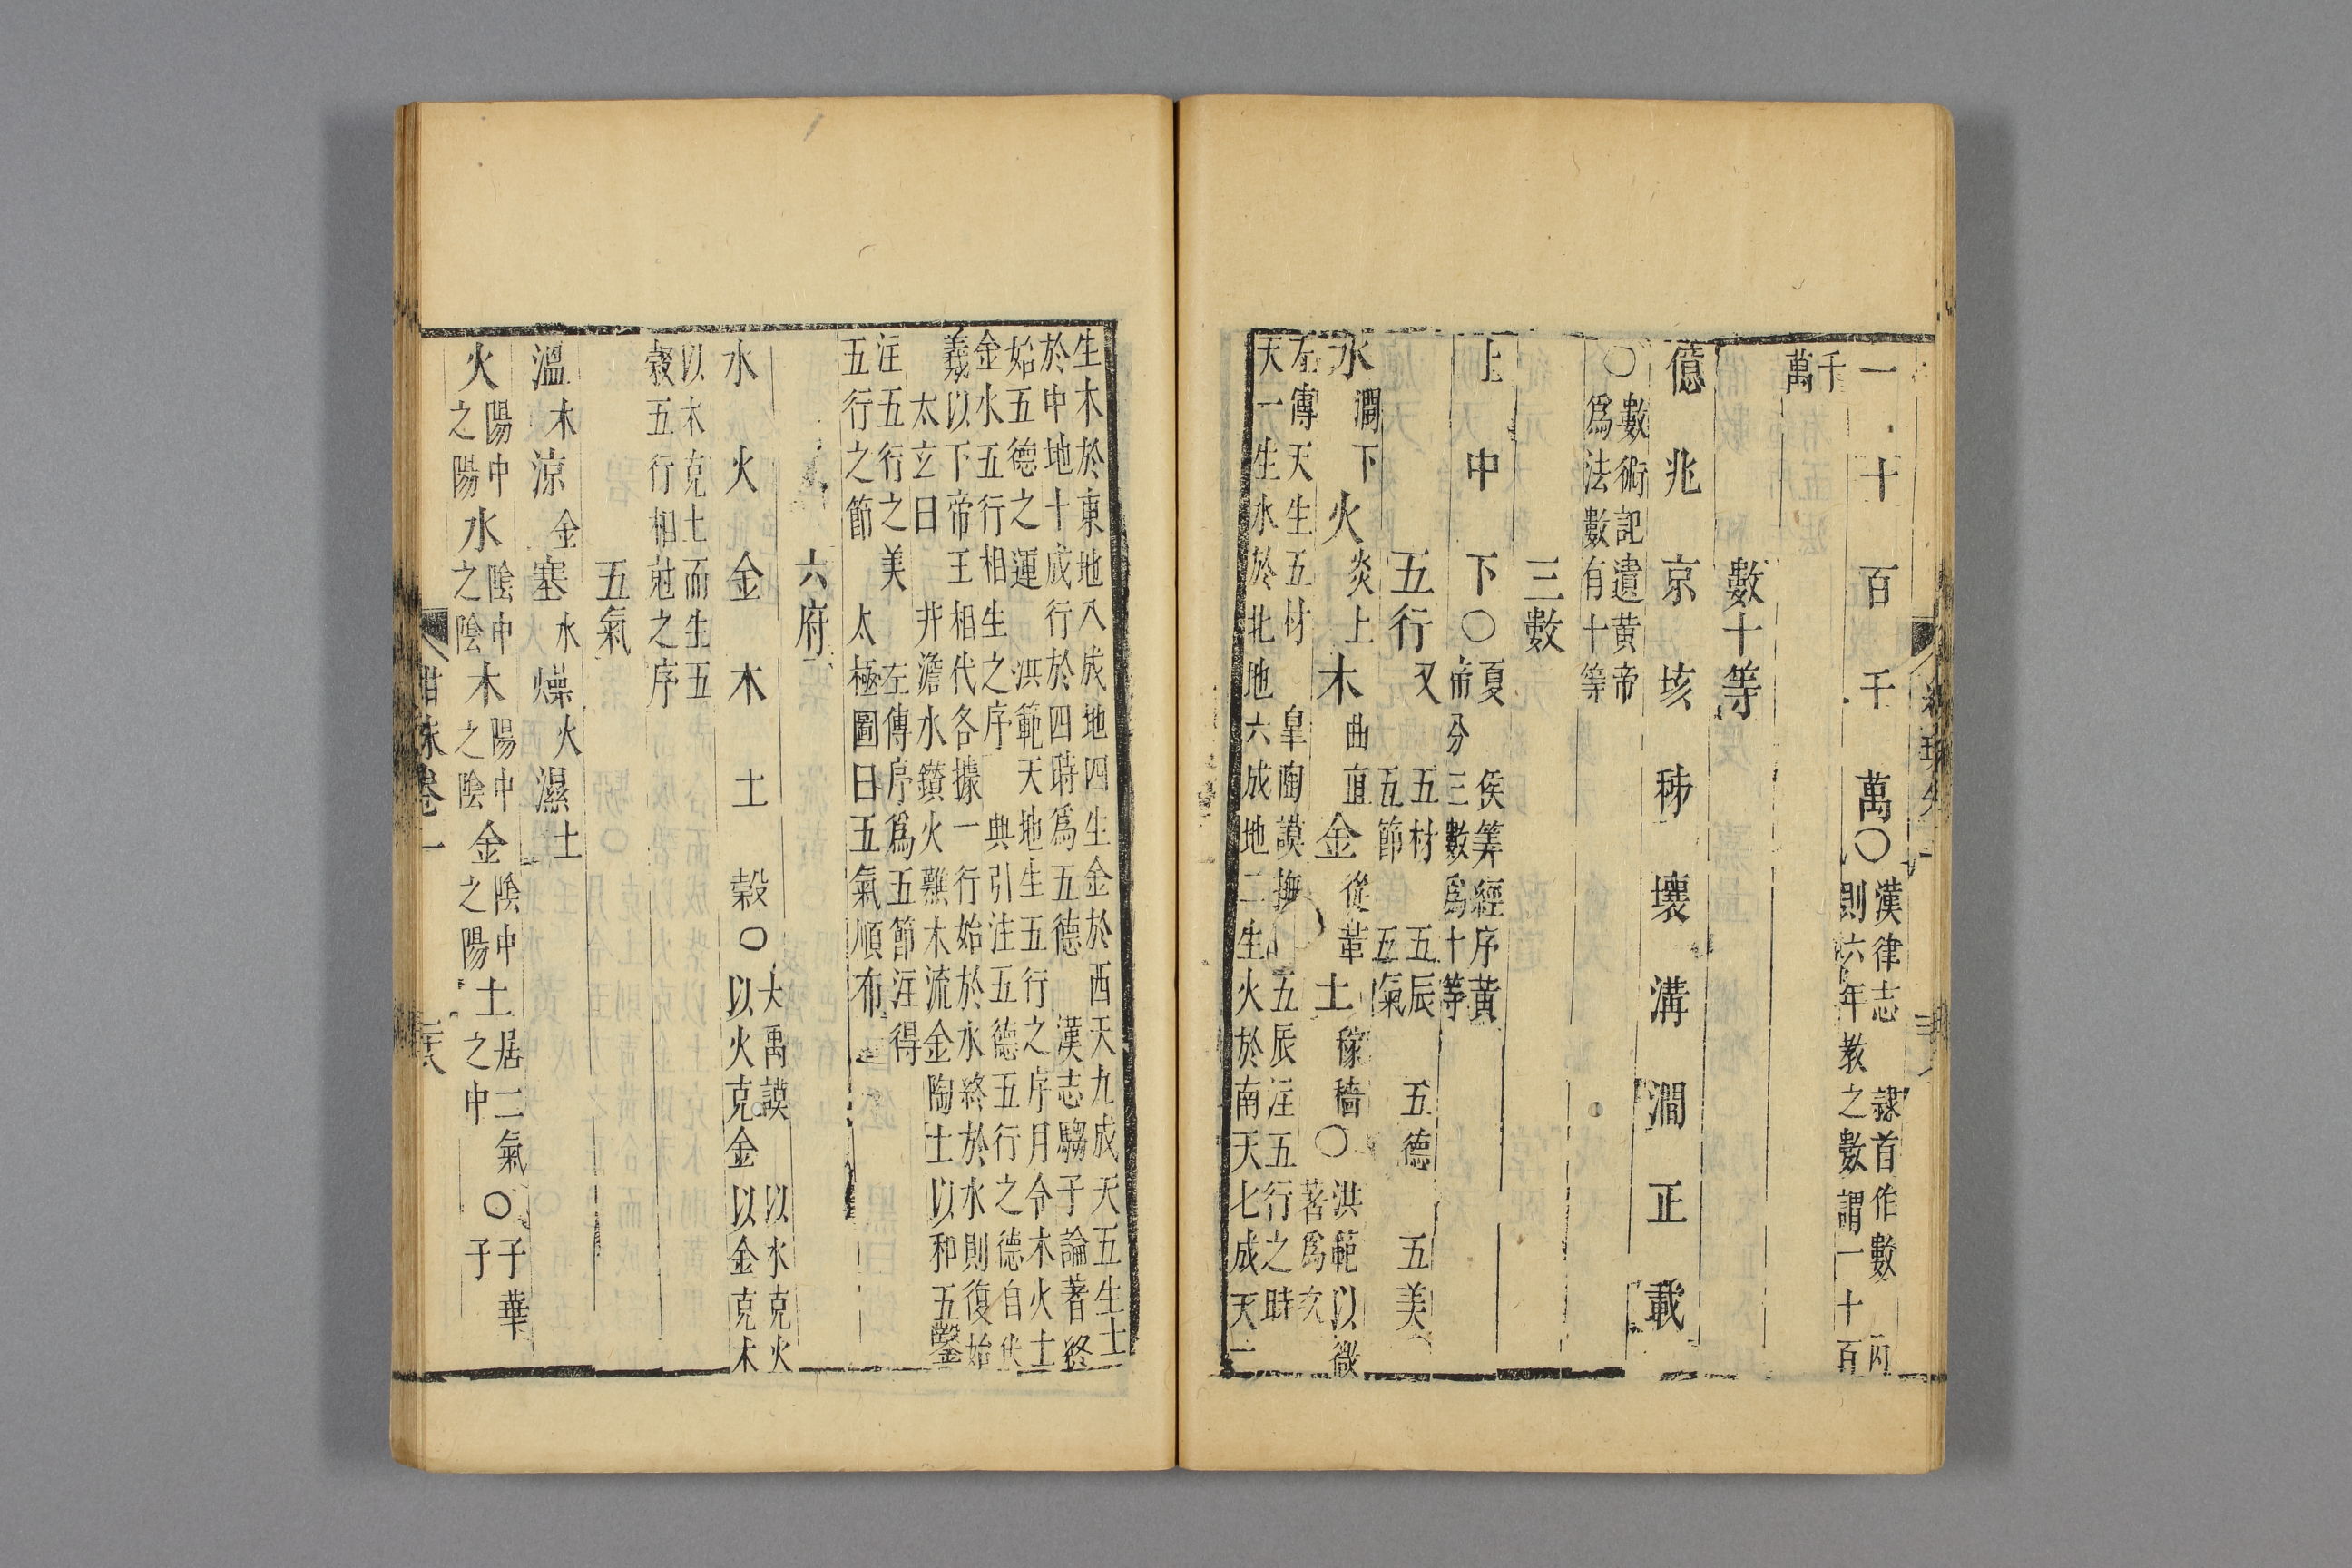 一十百千萬〇漢律志 隷首作數
則六年教之數謂一十百
千
萬
數十等
億兆京垓秭壤溝澗正載
〇數術記遺黃帝
爲法數有十等
三數
上中下〇夏侯筭經序黃
帝分三數爲十等
五行又五材 五辰 五德 五美
五節 五氣
水潤下火炎上木曲直金從革土稼穡〇洪範以微
著爲次
左傳天生五材 皐陶謨撫五辰注五行之時
天一生水於北地六成地二生火於南天七成天三
生木於東地八成地四生金於西天九成天五生土
於中地十成行於四時爲五德 漢志騶子論著終
始五德之運 洪範天地生五行之序月令木火土
金水五行相生之序 典引注五德五行之德自伏
羲以下帝王相代各據一行始於水終於水則復始
太玄曰 井澹水鑚火難木流金陶土以和五
注五行之美 左傳序爲五節注得
五行之節 太極圖曰五氣順布
六府
水火金木土穀〇大禹謨 以水克火
以火克金以金克木
以木克土而生五
穀五行相尅之序
五氣
溫木涼金塞水燥火濕土
火陽中之陽水陰中之陰木陽中之陰金陰中之陽土居二氣之中〇子華
子
卷一